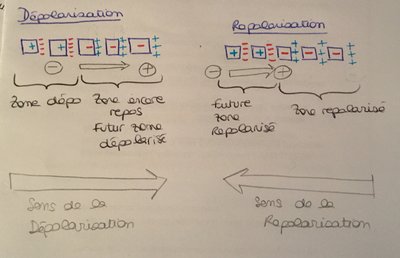 Dépolarisation
Repolarisation
+ + - - -
+ + - - -
- +
- +
Zone dépo
Zone encore
repos
Futur zone
dépolarisé
Future
Zone
Repolarisé
Zone repolarisé
Sens de la
Dépolarisation
Sens de la
Repolarisation